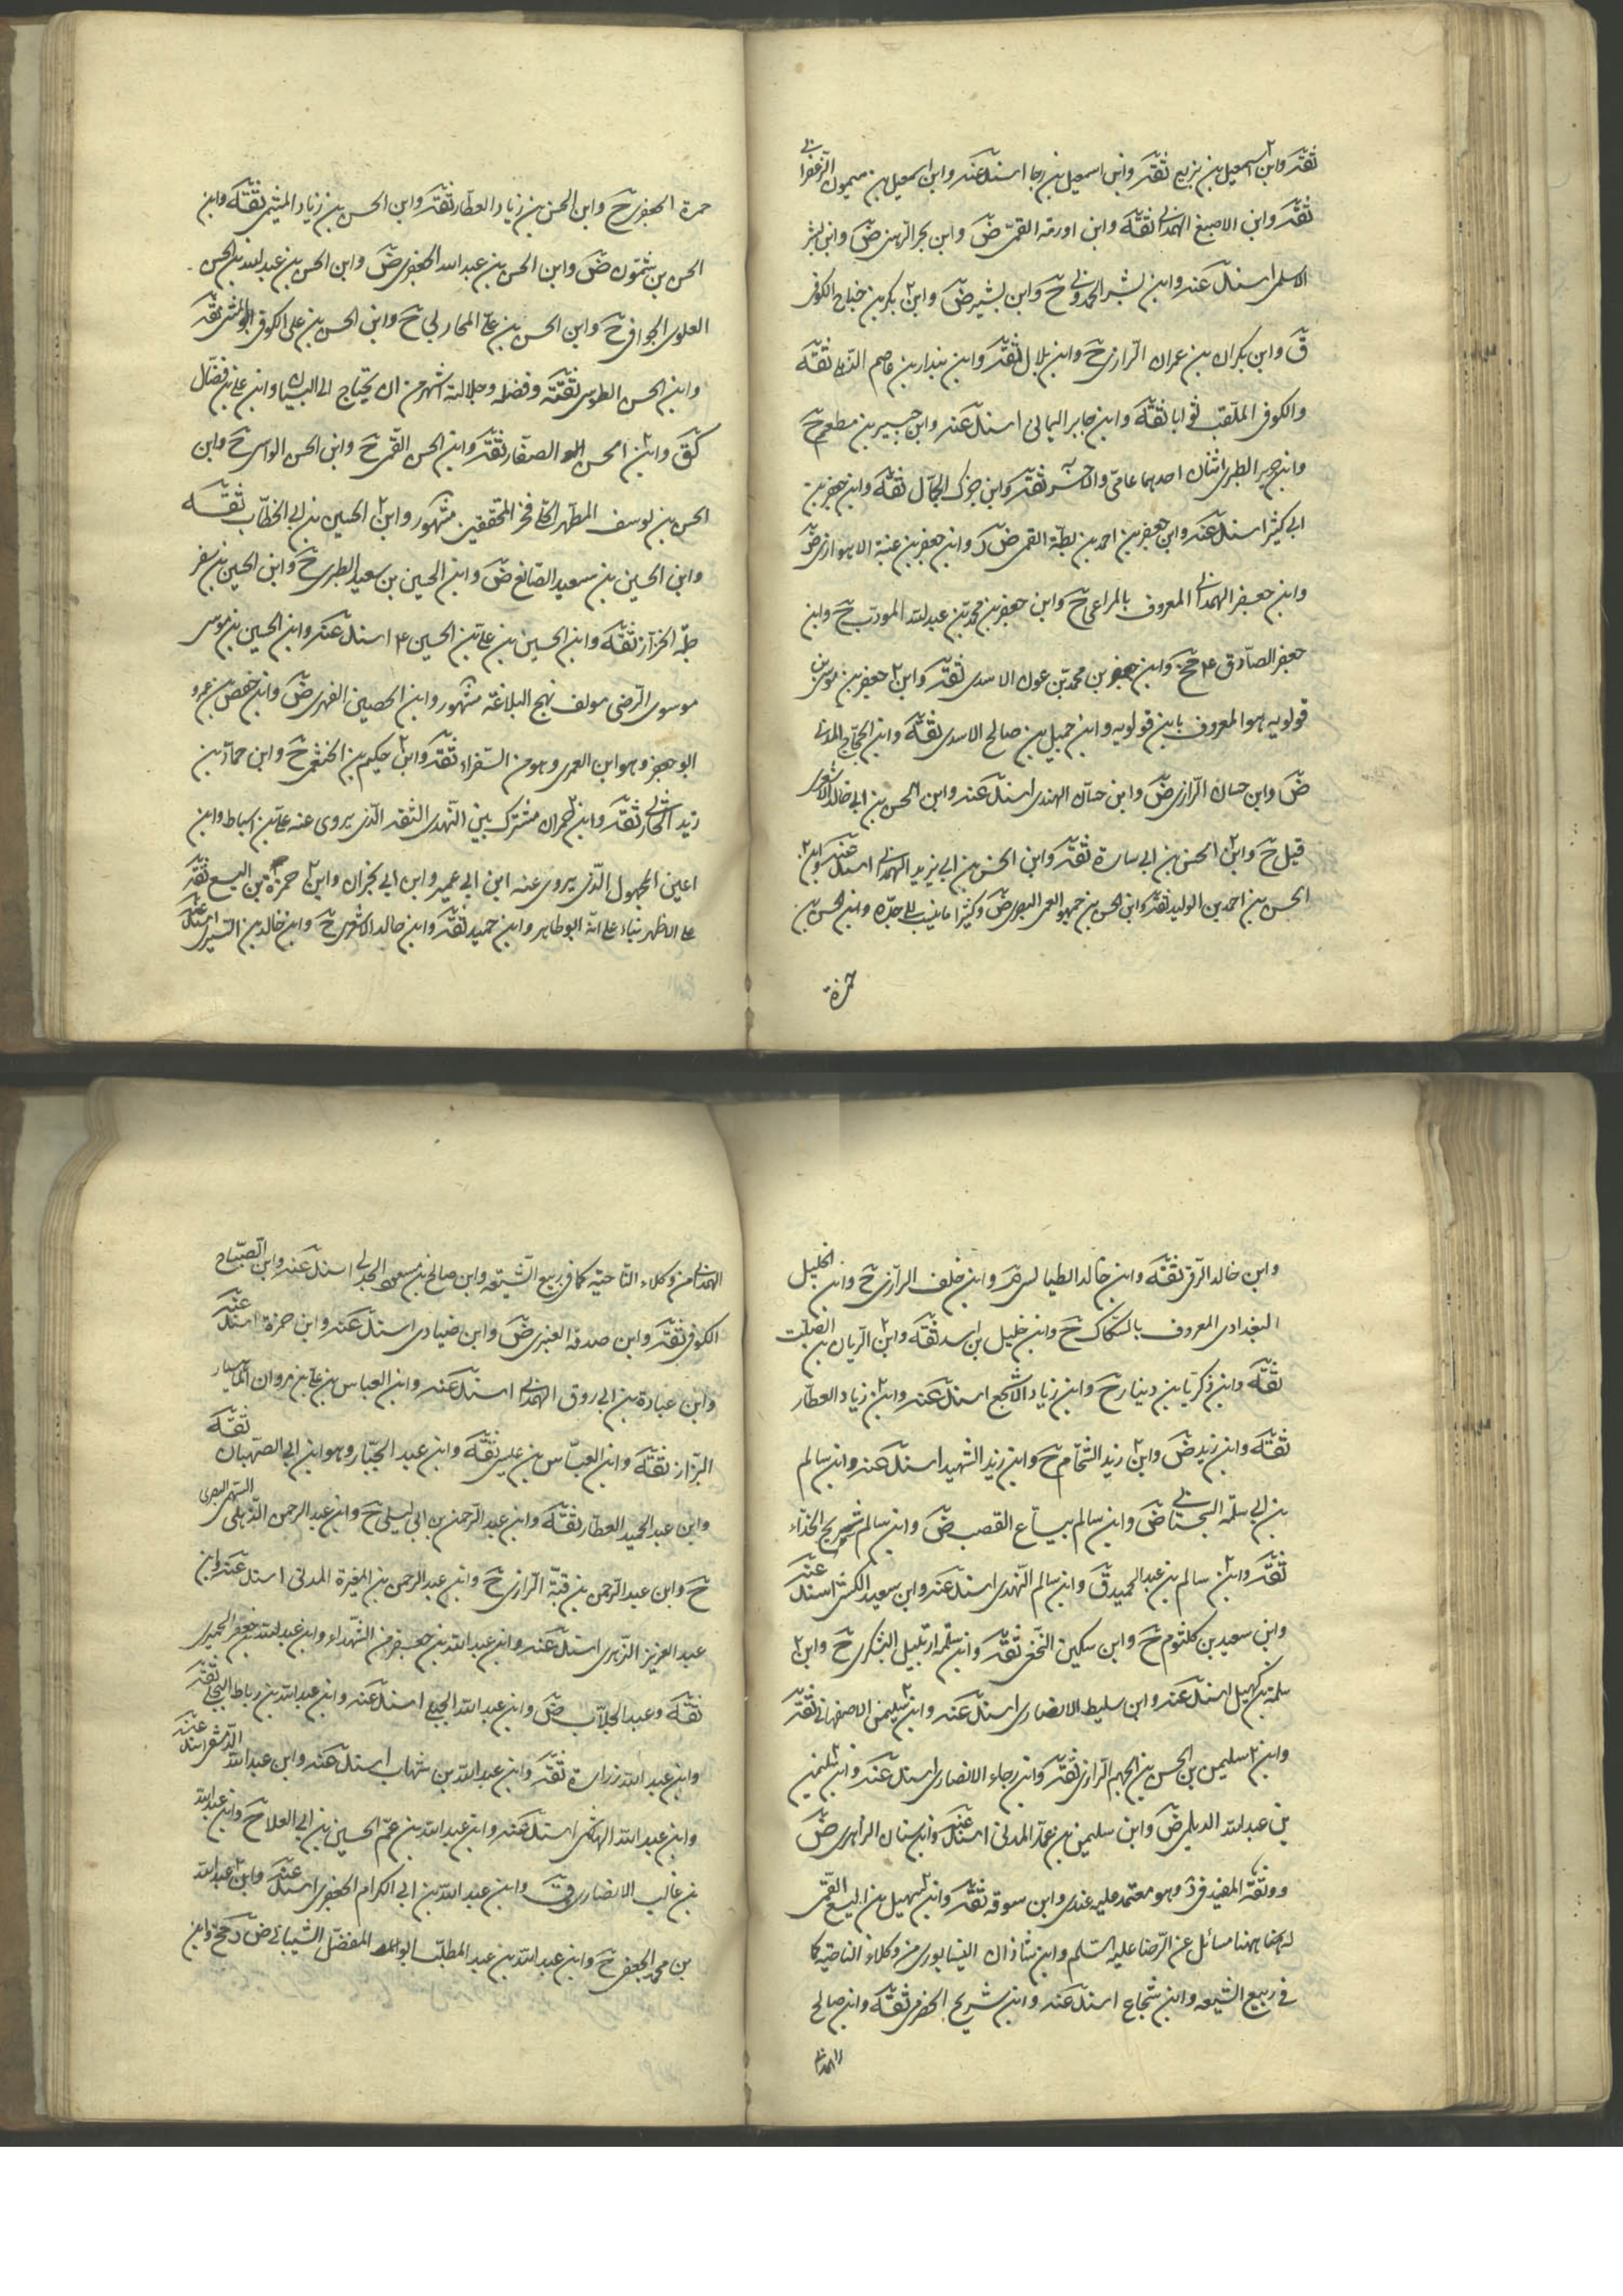 ثقة وابن اسمعيل بن بزيع ثقة وابن اسمعيل بن رجا اسند عنه وابن اسمعيل بن ميمون الزعفرانى
ثقة وابن الاصبغ الهمدانى ثقة وابن اورمة القمى ض وابن بحر الرهنى ض وابن بشر
الاسلمى اسند عنه وابن بشر الحمدونى ح وابن بشير ض وابن ٢ بكر بن جناح الكوفى
ق وابن بكران بن عمران الرازى ح وابن بلال ثقة وابن بندار بن عاصم الذهلى ثقة
والكوفى الملقب ثوابا ثقة وابن جابر اليمانى اسند عنه وابن جبير بن مطعم ح
وابن جرير الطبرى اثنان احدهما عامى والاخر ثقة وابن جزك الجمال ثقة وابن جعفر بن
ابى كثير اسند عنه وابن جعفر بن احمد بن بطة القمى ض ك وابن جعفر بن عنبة الاهوازى ض
وابن جعفر الهمدانى المعروف بالمراغى ح وابن جعفر بن محمد بن عبد الله المودب ح وابن
جعفر الصادق ع مح وابن جعفر بن محمد بن عون الاسدى ثقة وابن ٢ جعفر بن موسى بن
قولويه هو المعروف بابن قولويه وابن جميل بن صالح الاسدى ثقة وابن الحجاج المدنى
ض وابن حسان الرازى ض وابن حسان الهندى اسند عنه وابن الحسن بن ابى خالد الاشعرى
قيل ح وابن ٢ الحسن بن ابى سارة ثقة وابن الحسن بن ابى يزيد الهمدانى اسند عنه وابن ٢
الحسن بن احمد بن الوليد ثقة وابن الحسن بن جمهور العمى البصرى ض وكثيرا ما ينسب الى جده وابن الحسن بن
حمزة
حمزة الجعفرى ح وابن الحسن بن زياد العطار ثقة وابن الحسن بن زياد الميثمى ثقة وابن
الحسن بن شمون ض وابن الحسن بن عبد الله الجعفرى ض وابن الحسن بن عبد الله بن الحسن
العلوى الجوانى ح وابن الحسن بن على المحاربى ح وابن الحسن بن على الكوفى ابو المثنى ثقة
وابن الحسن الطوسى ثقة وفضله وجلالته اشهر من ان يحتاج الى البيان وابن على بن فضال
كق وابن الحسن الصفار ثقة وابن الحسن القمى ح وابن الحسن الواسى ح وابن
الحسن بن يوسف المطهر الحلى فخر المحققين مشهور وابن ٢ الحسين بن ابى الخطاب ثقة
وابن الحسين بن سعيد الصائغ ض وابن الحسين بن سعيد الطبرى ح وابن الحسين بن سفر
جلة الخزاز ثقة وابن الحسين بن على بن الحسين ع اسند عنه وابن الحسين بن موسى
موسوى الرضى مولف نهج البلاغة مشهور وابن الحصين الفهرى ض وابن حفص بن عمرو
ابو جعفر وهو ابن العمرى وهو من السفراء ثقة وابن ٢ حكيم بن الخثعمى ح وابن حماد بن
زيد الحارثى ثقة وابن حمران مشترك بين النهدى الثقة الذى يروى عنه على بن اسباط وابن
اعين المجهول الذى يروى عنه ابن ابى عمير وابن ابى نجران وابن ٢ حمزة بن اليسع ثقة
على الاظهر بناء على انه ابو طاهر وابن حميد ثقة وابن خالد الاشعرى ح وابن خالد بن السرى اسند عنه
وابن خالد البرقى ثقة وابن خالد الطيالسى ض وابن خلف الرازى ح وابن الخليل
البغدادى المعروف بالسكاك ح وابن خليل بن اسد ثقة وابن ٢ الريان بن الصلت
ثقة وابن زكريا بن دينار ح وابن زياد الاشجع اسند عنه وابن ٢ زياد العطار
ثقة وابن زيد ض وابن ٢ زيد الشحام ح وابن زيد الشهيد اسند عنه وابن سالم
بن ابى سلمة السجستانى ض وابن سالم بياع القصب ض وابن سالم شريح الحذاء
ثقة وابن ٢ سالم بن عبد الحميد ق وابن سالم النهدى اسند عنه وابن سعيد الكشى اسند عنه
وابن سعيد بن كلثوم ح وابن سكين النخعى ثقة وابن سلمة ارتبيل اليشكرى ح وابن ٢
سلمة بن كهيل اسند عنه وابن سليط الانصارى اسند عنه وابن ٢ سليمن الاصفهانى ثقة
وابن ٢ سليمن بن الحسن بن الجهم الرازى ثقة وابن رجاء الانصارى اسند عنه وابن ٢ سليمن
بن عبد الله الديلمى ض وابن سليمن بن عمار المدنى اسند عنه وابن سنان الزاهرى ض
ووثقه المفيد فى د وهو معتمد عليه عندى وابن سوقه ثقة وابن ٢ سهيل بن اليسع القمى
له ههنا مسائل عن الرضا عليه السلم وابن شاذان النيسابورى من وكلاء الناحية كما
فى ربيع الشيعه وابن شجاع اسند عنه وابن شريح الحضرمى ثقة وابن صالح
الهمدانى
الهمدانى من وكلاء الناحية كما فى ربيع الشيعه وابن صالح بن مسعود الجدلى اسند عنه وابن الصباح
الكوفى ثقة وابن صدقة العنبرى ض وابن ضيادى اسند عنه وابن ضمرة اسند عنه
وابن عبادة بن ابى روق الهمدانى اسند عنه وابن العباس بن على بن مروان الماهيار
البزاز ثقة وابن العباس بن عيسى ثقة وابن عبد الجبار وهو ابن ابى الصهبان ثقة
وابن عبد الحميد العطار ثقة وابن عبد الرحمن بن ابى ليلى ح وابن عبد الرحمن الذهلى السهمى البصرى
ح وابن عبد الرحمن بن قبة الرازى ح وابن عبد الرحمن بن المغيرة المدنى اسند عنه وابن
عبد العزيز الزهرى اسند عنه وابن عبد الله بن جعفر من الشهداء وابن عبد الله بن جعفر الحميرى
ثقة وعبد الجلاب ض وابن عبد الله الجبلى اسند عنه وابن عبد الله بن رباط البجلى ثقة
وابن عبد الله زرارة ثقة وابن عبد الله بن شهاب اسند عنه وابن عبد الله الدمشقى اسند عنه
وابن عبد الله الهاشمى اسند عنه وابن عبد الله بن عم الحسين بن ابى العلا ح وابن عبد الله
بن غالب الانصارى ق وابن عبد الله بن ابى الكرام الجعفرى اسند عنه وابن ٢ عبد الله
بن محمد الجعفى ح وابن عبد الله بن عبد المطلب ابو المفضل الشيبانى ض د جخ وابن